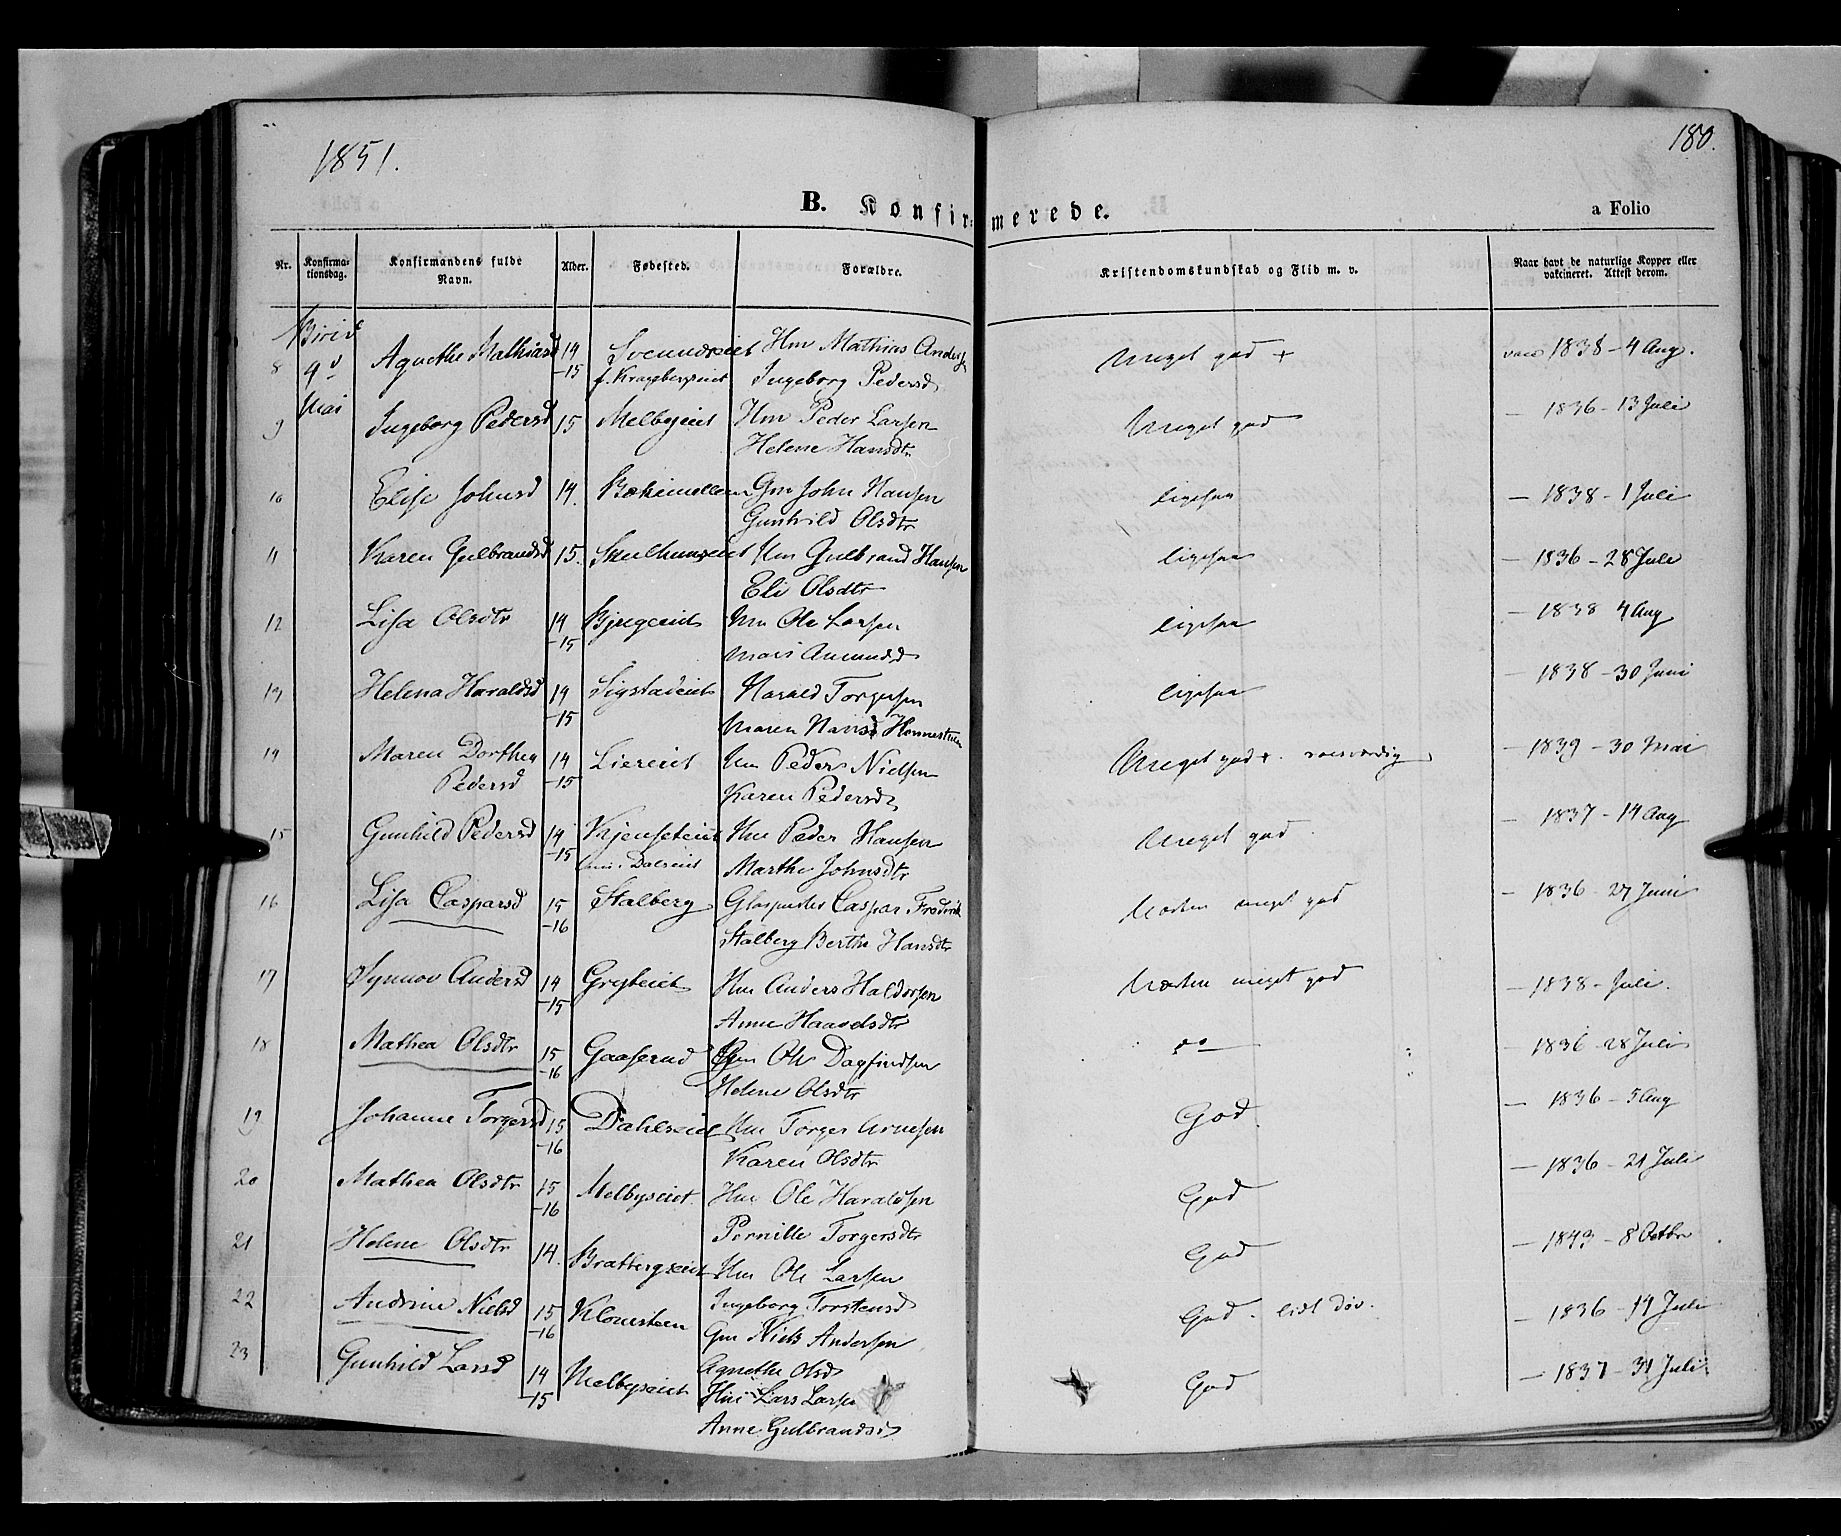 1851.
180.
B. Konfirmerede.
a Folio
Nr. Konfirmationsdag. Konfirmandens fulde Navn. Alder. Fødested. Forældre. Kristendomskundskab og Flid m. v. Naar havt de naturlige Kopper eller vakcineret. Attest derom.
Biri
8 9d Agnethe Mathiasd 14 Svenndseiet Hm Mathias Anders Meget god + vacc 1838 - 4 Aug.
-15 f. Kragebergseiet Ingeborg Pedersd
Mai
9 Ingeborg Pedersd 15 Melbyeiet Hm Peder Larsen Meget god — 1836 - 13 Juli
Helene Hansdtr
10 Elise Johnsd 14. Gm John Hansen ligesaa — 1838 - 1 Juli
Gunhild Olsdtr
11 Karen Gulbrandsd 15. Hm Gulbrand Hansen ligesaa — 1836 - 28 Juli
Eli Olsdtr
12 Lisa Olsdtr 14 Bjugeeiet Hm Ole Larsen ligesaa — 1838 4 Aug
-15 Mari Amundsd
13 Helena Haraldsd 14 Sigstadeiet Harald Torgersen ligesaa — 1838 - 30 Juni
-15 Maren Hansd
14 Maren Dorthea 14 Liereiet Hm Peder Nielsen Meget god +. roesværdig — 1839 - 30 Mai
Pedersd -15 Karen Pedersd
15 Gunhild Pedersd 14 Hm Peder Hansen Meget god — 1837 - 14 Aug
-15 Dalseiet Marthe Johnsdtr
16 Lisa Caspersd 15 Stalberg Glaspuster Caspar Fredrik Næsten meget god — 1836 - 27 Juni
-16 Stalberg Berthe Hansdtr
17 Synnov Andersd 14 Gryteiet Hm Anders Haldorsen Næsten meget god — 1838 - Juli.
-15 Anne Haavelsdtr
18 Mathea Olsdtr 15 Gaaserud Gm Ole Dagfindsen — 1836 - 28 Juli
-16 Helene Olsdtr
19 Johanne Torgersd 15 Dahlseiet Hm Torger Arnesen God. — 1836 - 5 Aug
-16 Karen Olsdtr
20 Mathea Olsdtr 15 Melbyseiet. Hm Ole Haraldsen God — 1836 - 21 Juli
-16 Pernille Torgersdtr
21 Helene Olsdtr 14. Bratbergseiet Hm Ole Larsen God — 1843 - 8 Octbr
Ingeborg Torstensd
22 Andrine Nielsd 15 Klomsteen Gm Niels Andersen God. lidt døv. — 1836 - 14 Juli
-16 Agnethe Olsd
23 Gunhild Larsd 14 Melbyseiet Hm Lars Larsen God — 1837 - 31 Juli
-15 Anne Gulbrandsd